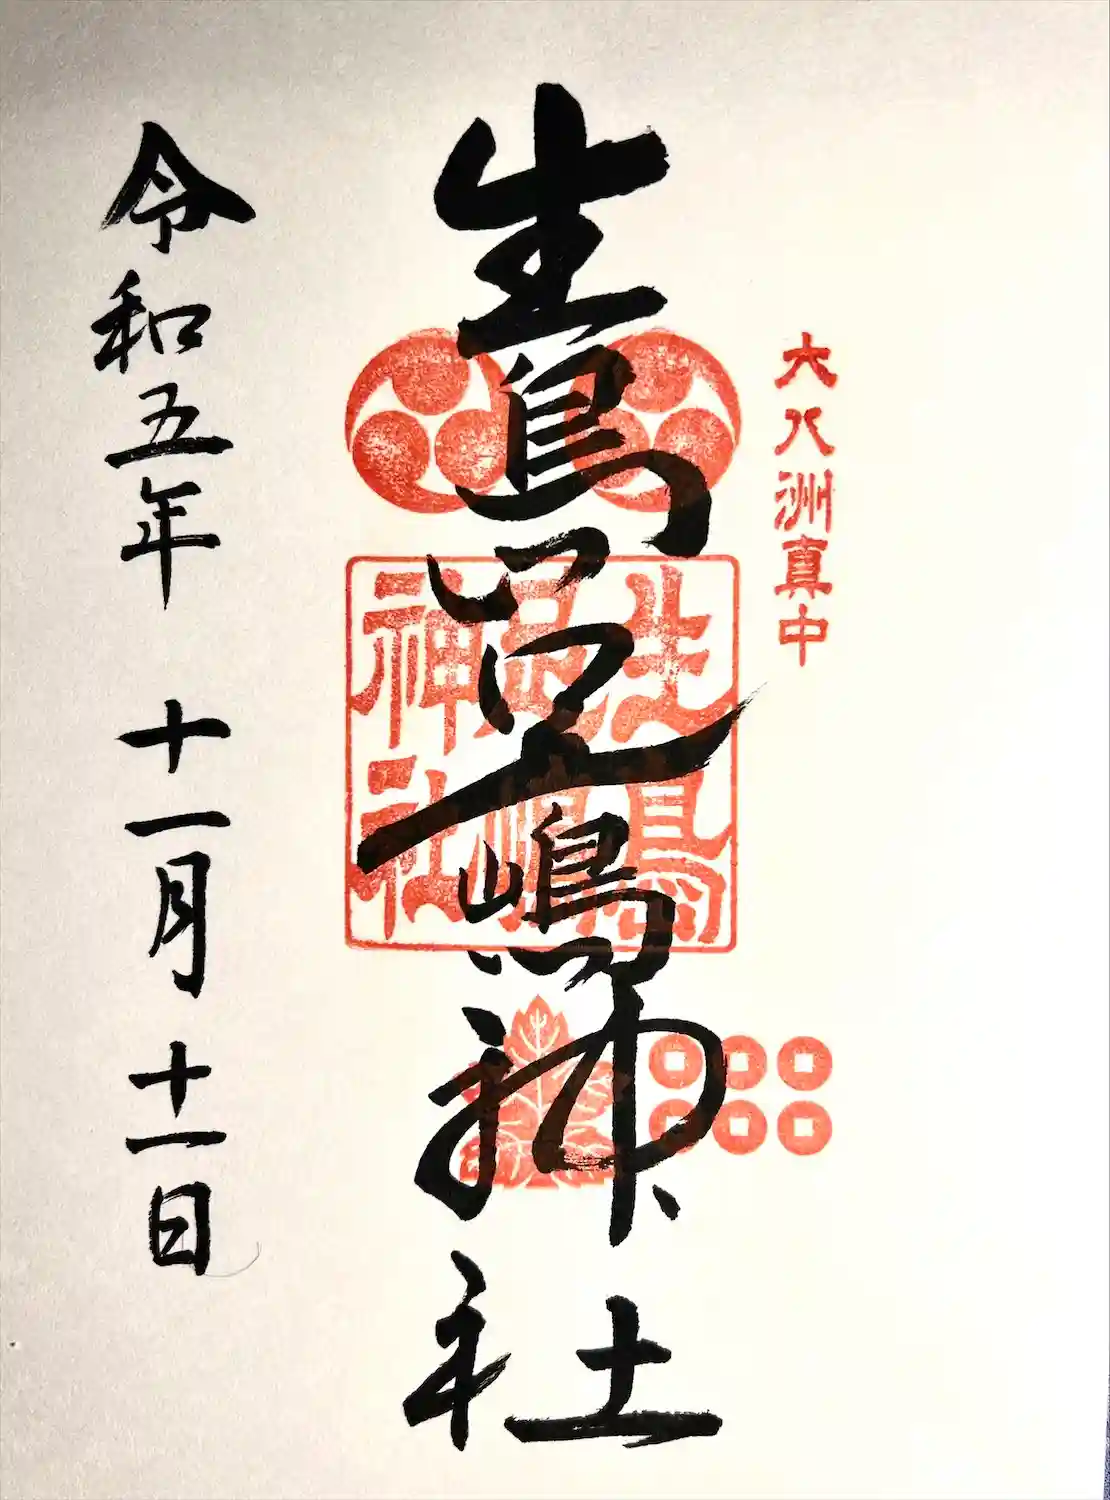 大八洲真中
生島足嶋神社
生島足嶋神社
令和五年 十一月 十一日